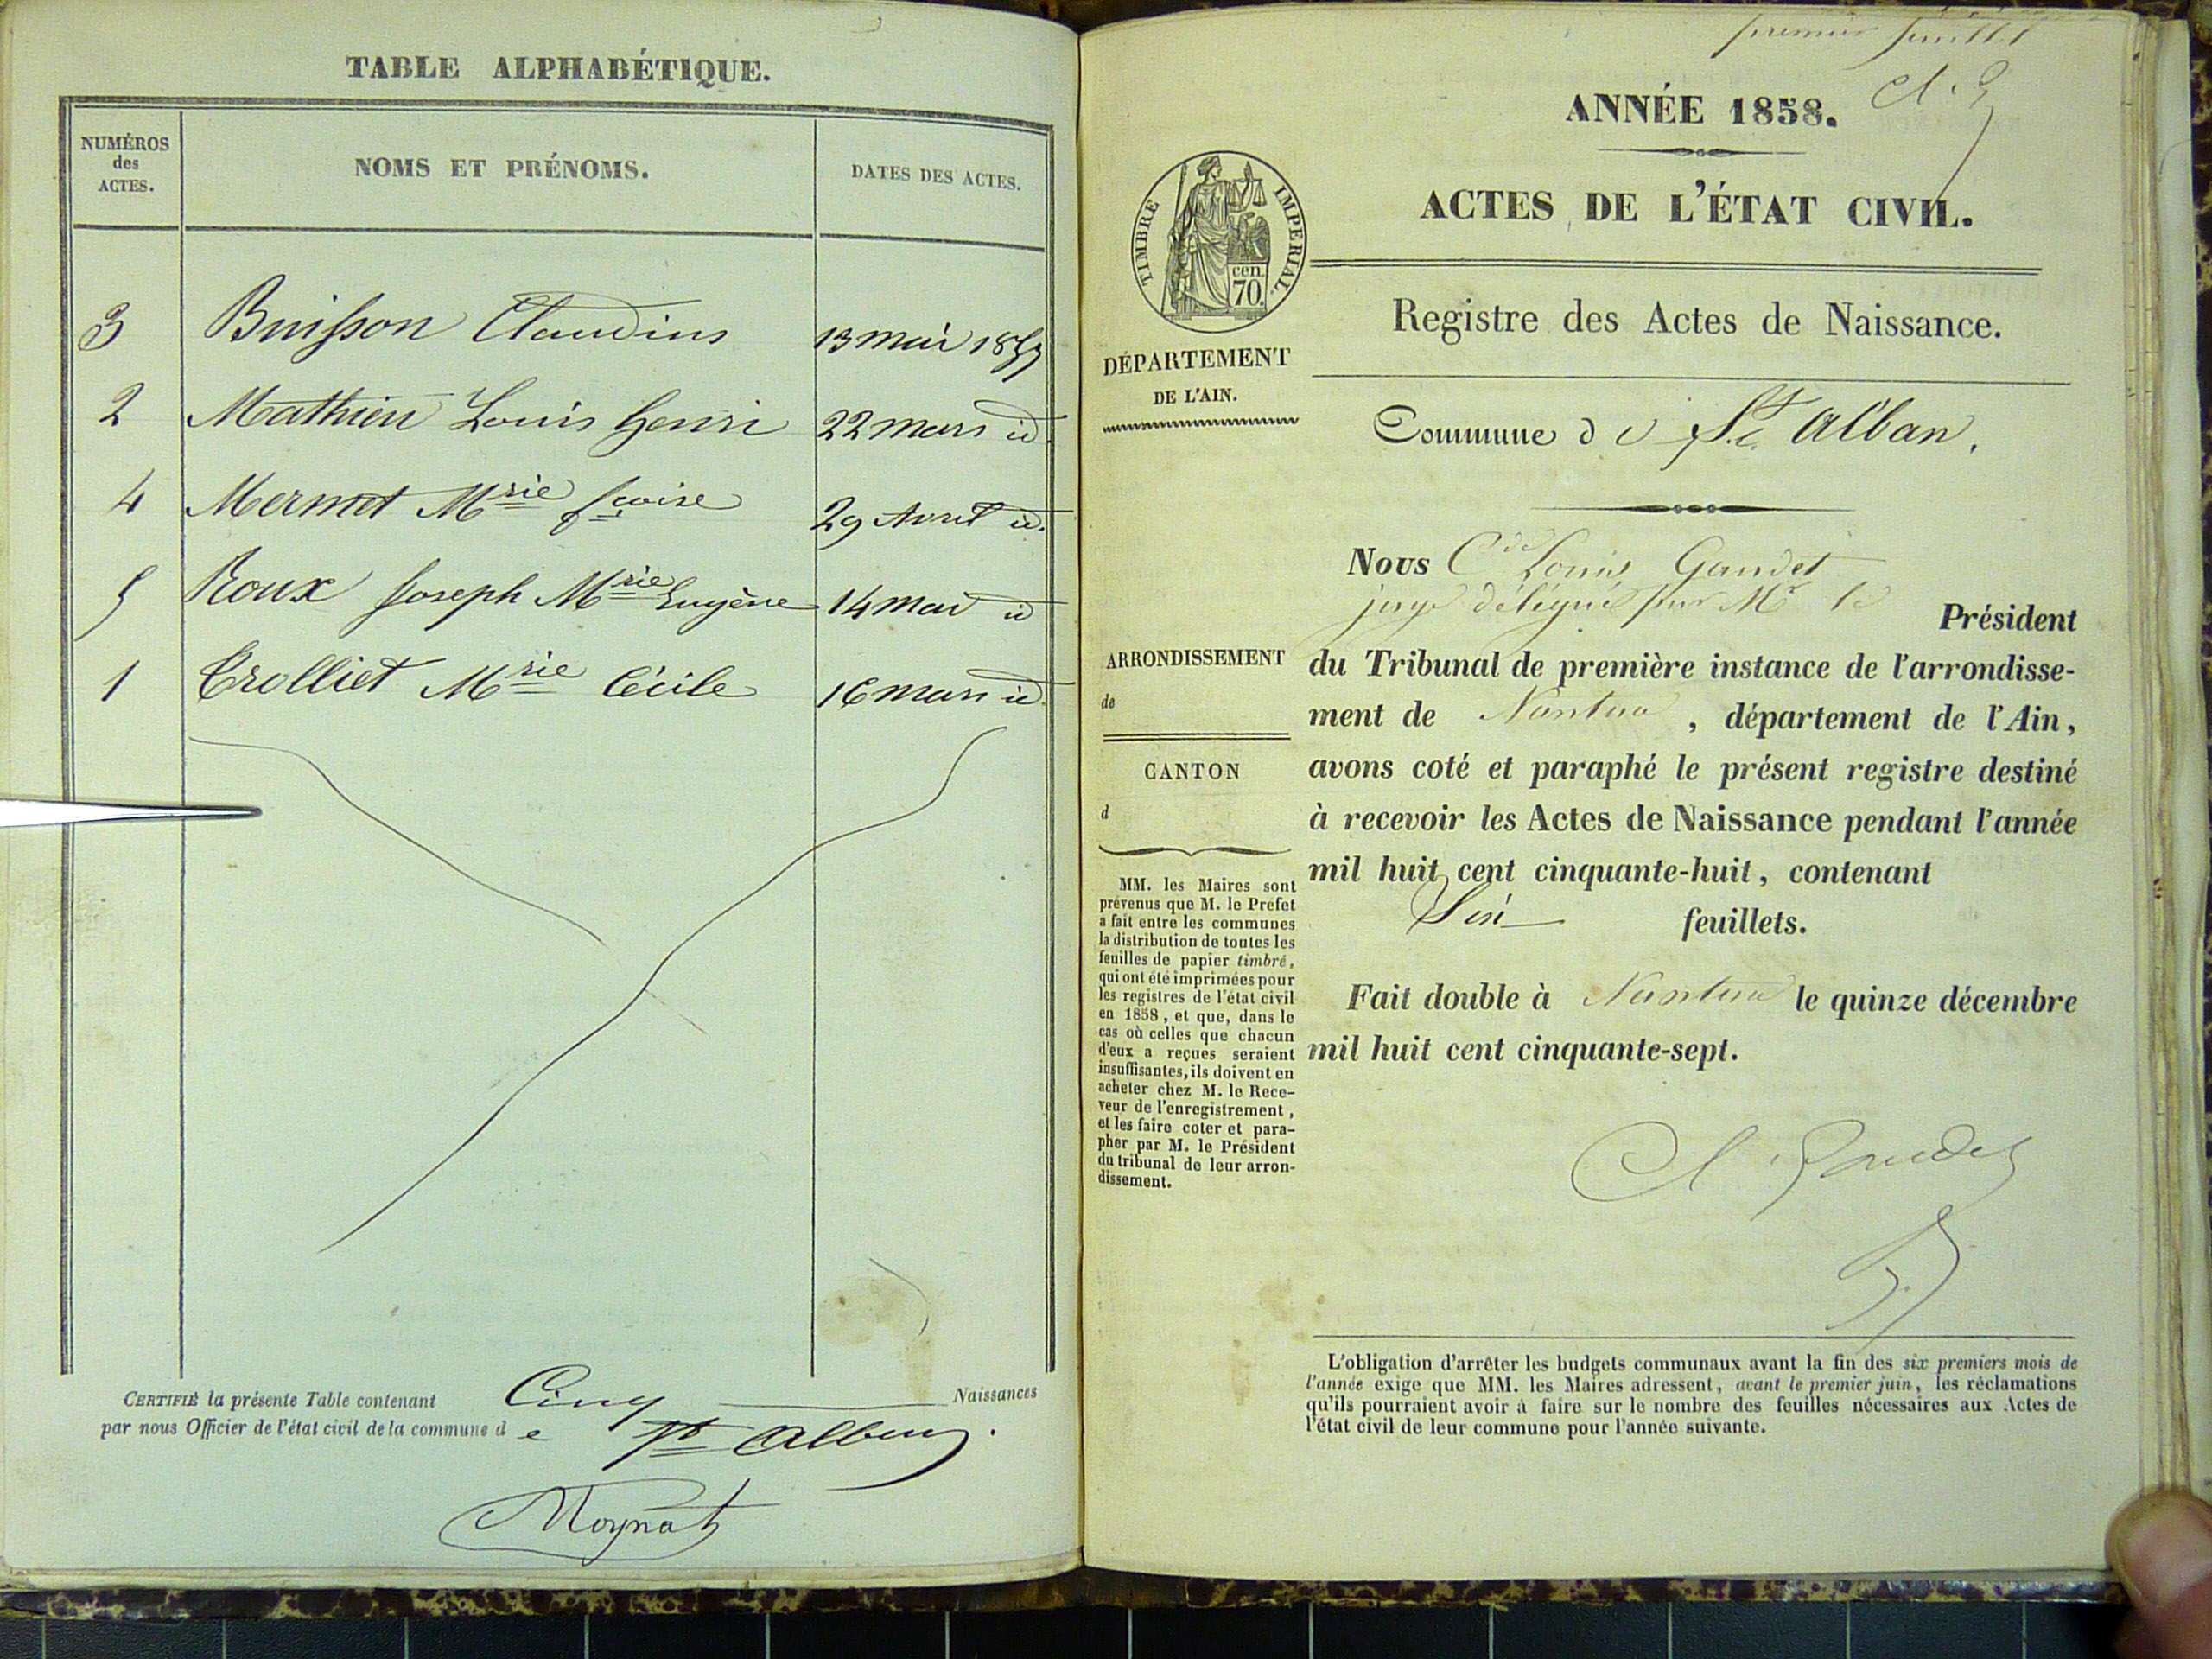 TABLE ALPHABÉTIQUE.
NUMÉROS
des
ACTES.
NOMS ET PRÉNOMS.
DATES DES ACTES.
3 Buisson Claudius 13 mai 1857
2 Mathieu Louis henri 22 mars id.
4 Mermet Mrie fçoise 29 Avril id.
5 Roux Joseph Mrie Eugène 14 mai id
1 Trolliet Mrie Cécile 16 mars id
CERTIFIÉ la présente Table contenant Cinq Naissances
par nous Officier de l'état civil de la commune de St Alban.
Moynat
premier feuillet
ANNÉE 1858.
ACTES DE L'ÉTAT CIVIL.
TIMBRE IMPÉRIAL
cen.
70.
DÉPARTEMENT
DE L'AIN.
Registre des Actes de Naissance.
Commune de St Alban.
Nous Cde Louis Gaudet
juge délégué par Mr le Président
du Tribunal de première instance de l'arrondisse-
ment de Nantua, département de l'Ain,
avons coté et paraphé le présent registre destiné
à recevoir les Actes de Naissance pendant l'année
mil huit cent cinquante-huit, contenant
feuillets.
Fait double à Nantua le quinze décembre
mil huit cent cinquante-sept.
Cl. Gaudet
ARRONDISSEMENT
de
CANTON
d
MM. les Maires sont
prévenus que M. le Préfet
a fait entre les communes
la distribution de toutes les
feuilles de papier timbré,
qui ont été imprimées pour
les registres de l'état civil
en 1858, et que, dans le
cas où celles que chacun
d'eux a reçues seraient
insuffisantes, ils doivent en
acheter chez M. le Rece-
veur de l'enregistrement,
et les faire coter et para-
pher par M. le Président
du tribunal de leur arron-
dissement.
L'obligation d'arrêter les budgets communaux avant la fin des six premiers mois de
l'année exige que MM. les Maires adressent, avant le premier juin, les réclamations
qu'ils pourraient avoir à faire sur le nombre des feuilles nécessaires aux Actes de
l'état civil de leur commune pour l'année suivante.